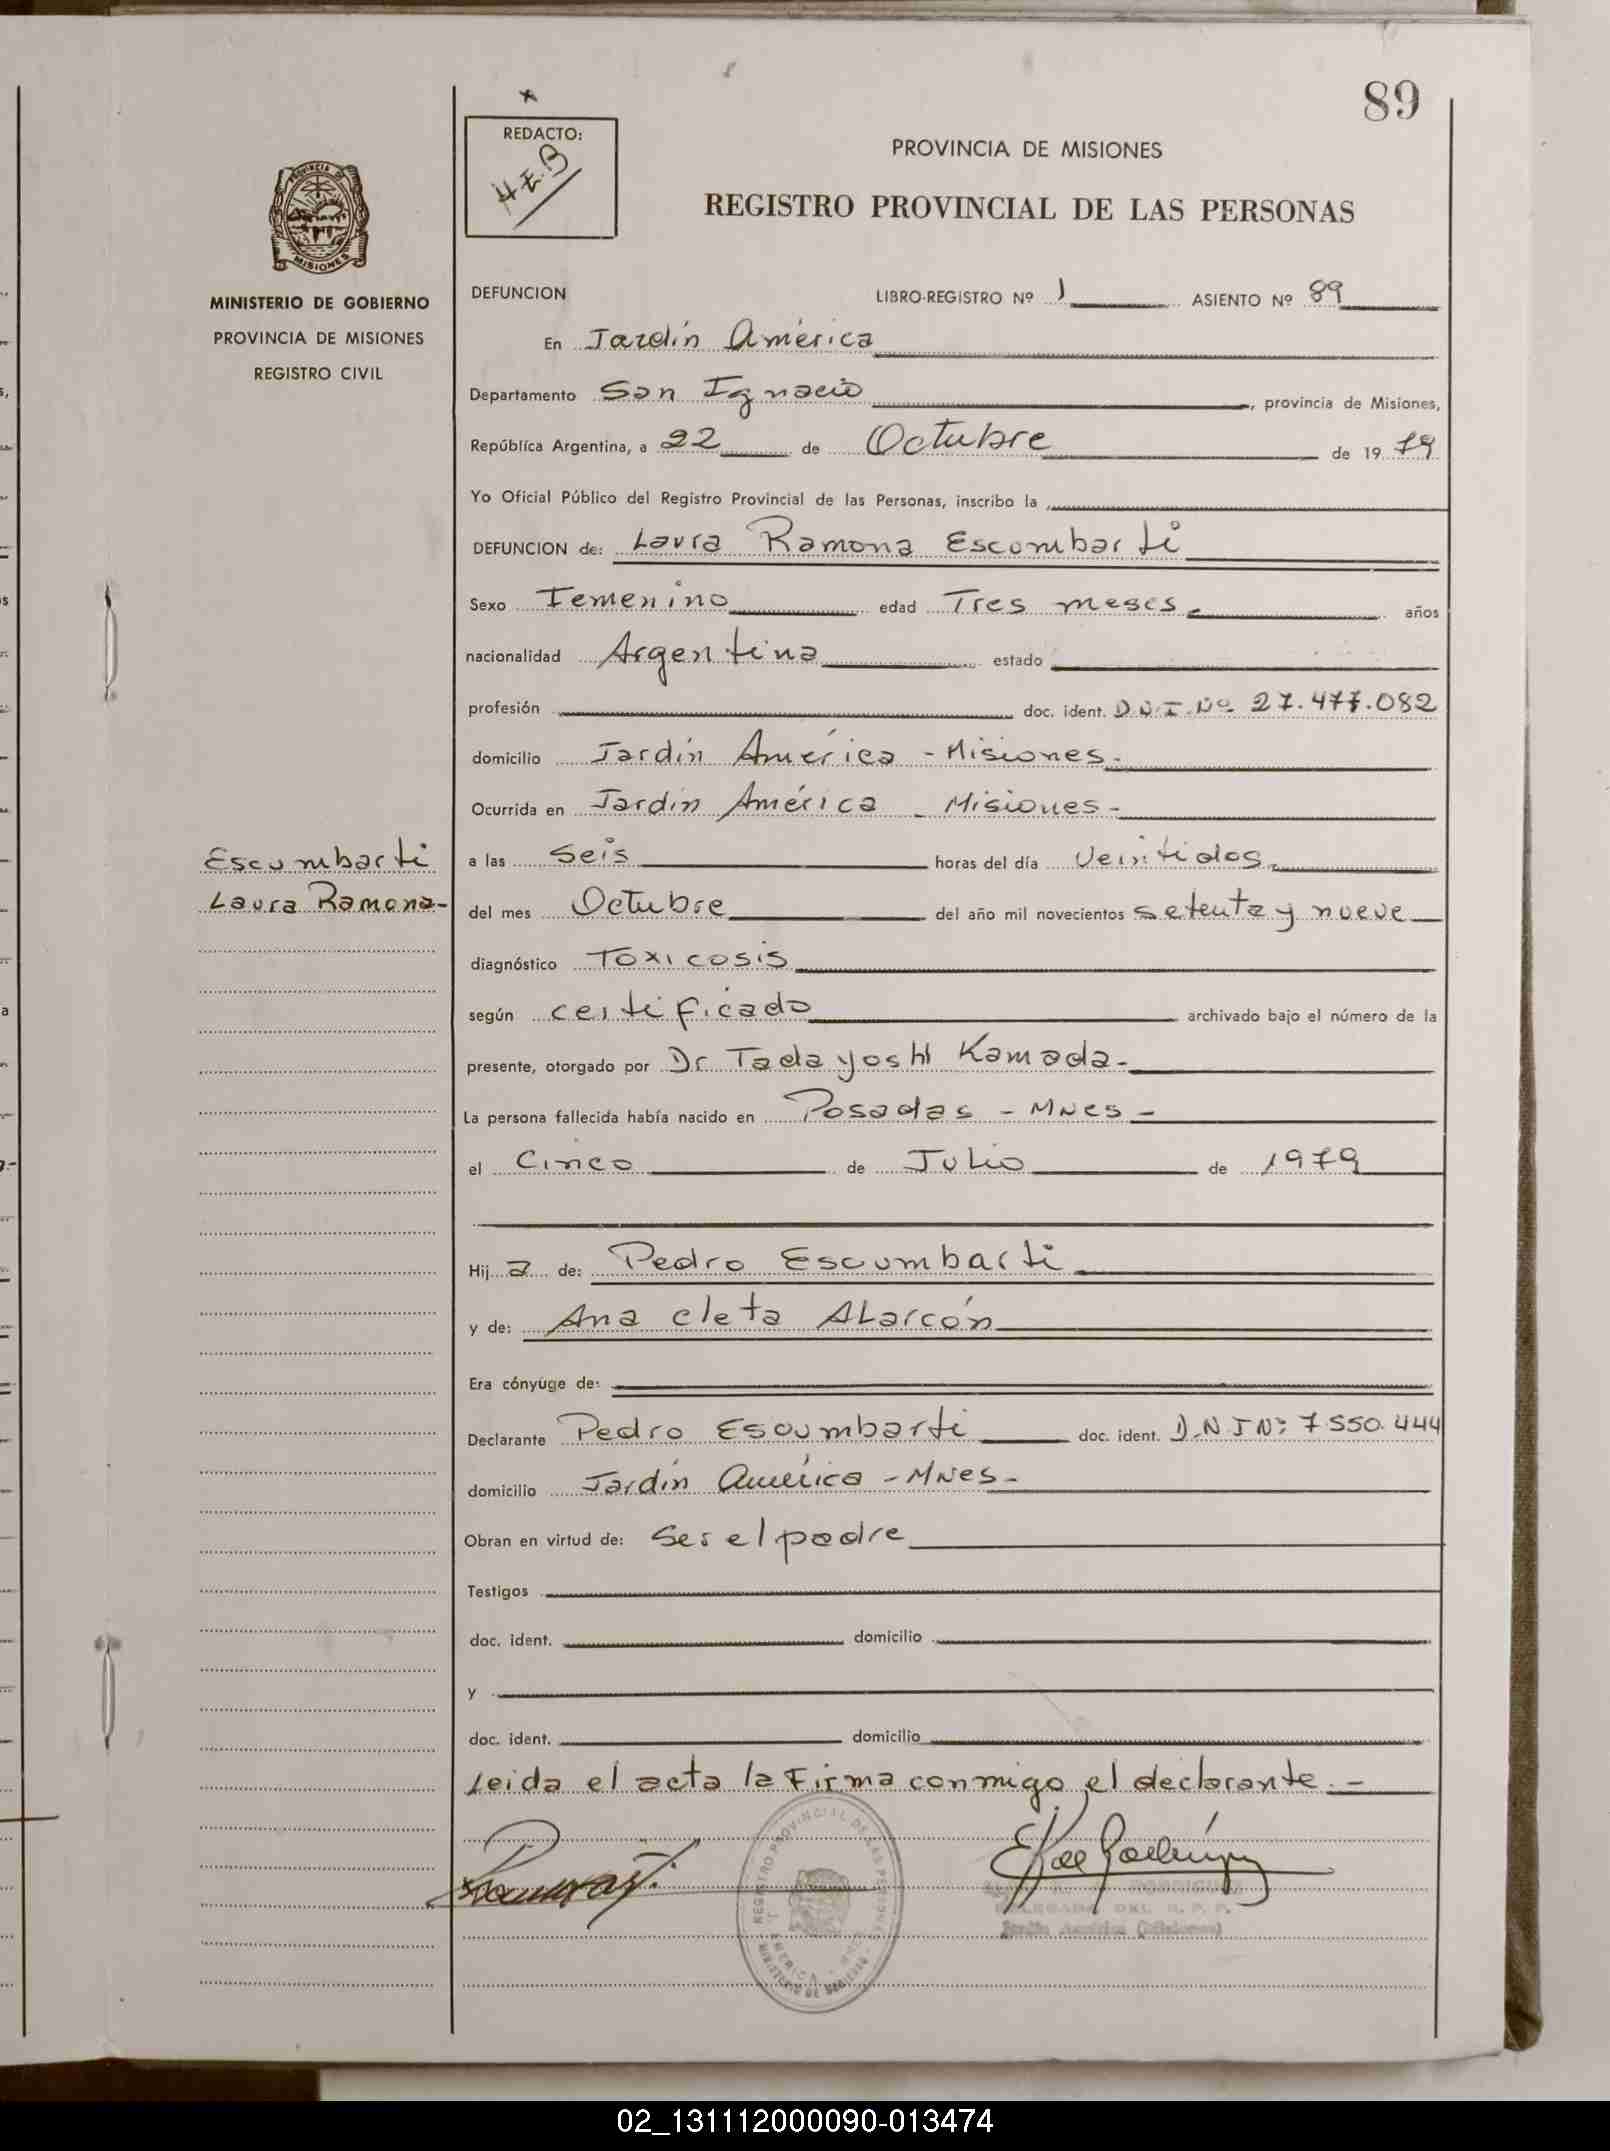 89
REDACTO:
H.E.B
PROVINCIA DE MISIONES
REGISTRO PROVINCIAL DE LAS PERSONAS
PROVINCIA DE
MISIONES
MINISTERIO DE GOBIERNO
PROVINCIA DE MISIONES
REGISTRO CIVIL
DEFUNCION
LIBRO-REGISTRO Nº 1 ASIENTO Nº 89
En Jardín América
Departamento San Ignacio, provincia de Misiones,
República Argentina, a 22 de Octubre de 1979
Yo Oficial Público del Registro Provincial de las Personas, inscribo la
DEFUNCION de: Laura Ramona Escombarti
Sexo Femenino edad Tres meses años
nacionalidad Argentina estado
profesión doc. ident. D.N.I.Nº 27.477.082
domicilio Jardín América - Misiones-
Ocurrida en Jardín América - Misiones-
Escumbarti
Laura Ramona-
a las Seis horas del día Veintidos
del mes Octubre del año mil novecientos setenta y nueve
diagnóstico Toxicosis
según certificado archivado bajo el número de la
presente, otorgado por Dr Tadayoshi Kamada-
La persona fallecida había nacido en Posadas - Mnes -
el Cinco de Julio de 1979
Hija de: Pedro Escumbarti
y de: Ana cleta Alarcón
Era cónyuge de:
Declarante Pedro Escumbarti doc. ident. D.N.I Nº: 7550.444
domicilio Jardín América - Mnes -
Obran en virtud de: Ser el padre
Testigos
doc. ident. domicilio
y
doc. ident. domicilio
Leida el acta la Firma conmigo el declarante.-
REGISTRO PROVINCIAL DE LAS PERSONAS
MINISTERIO DE GOBIERNO
RODRIGUEZ
DELEGADA DEL R. P. P.
Jardín América (Misiones)
02_131112000090-013474